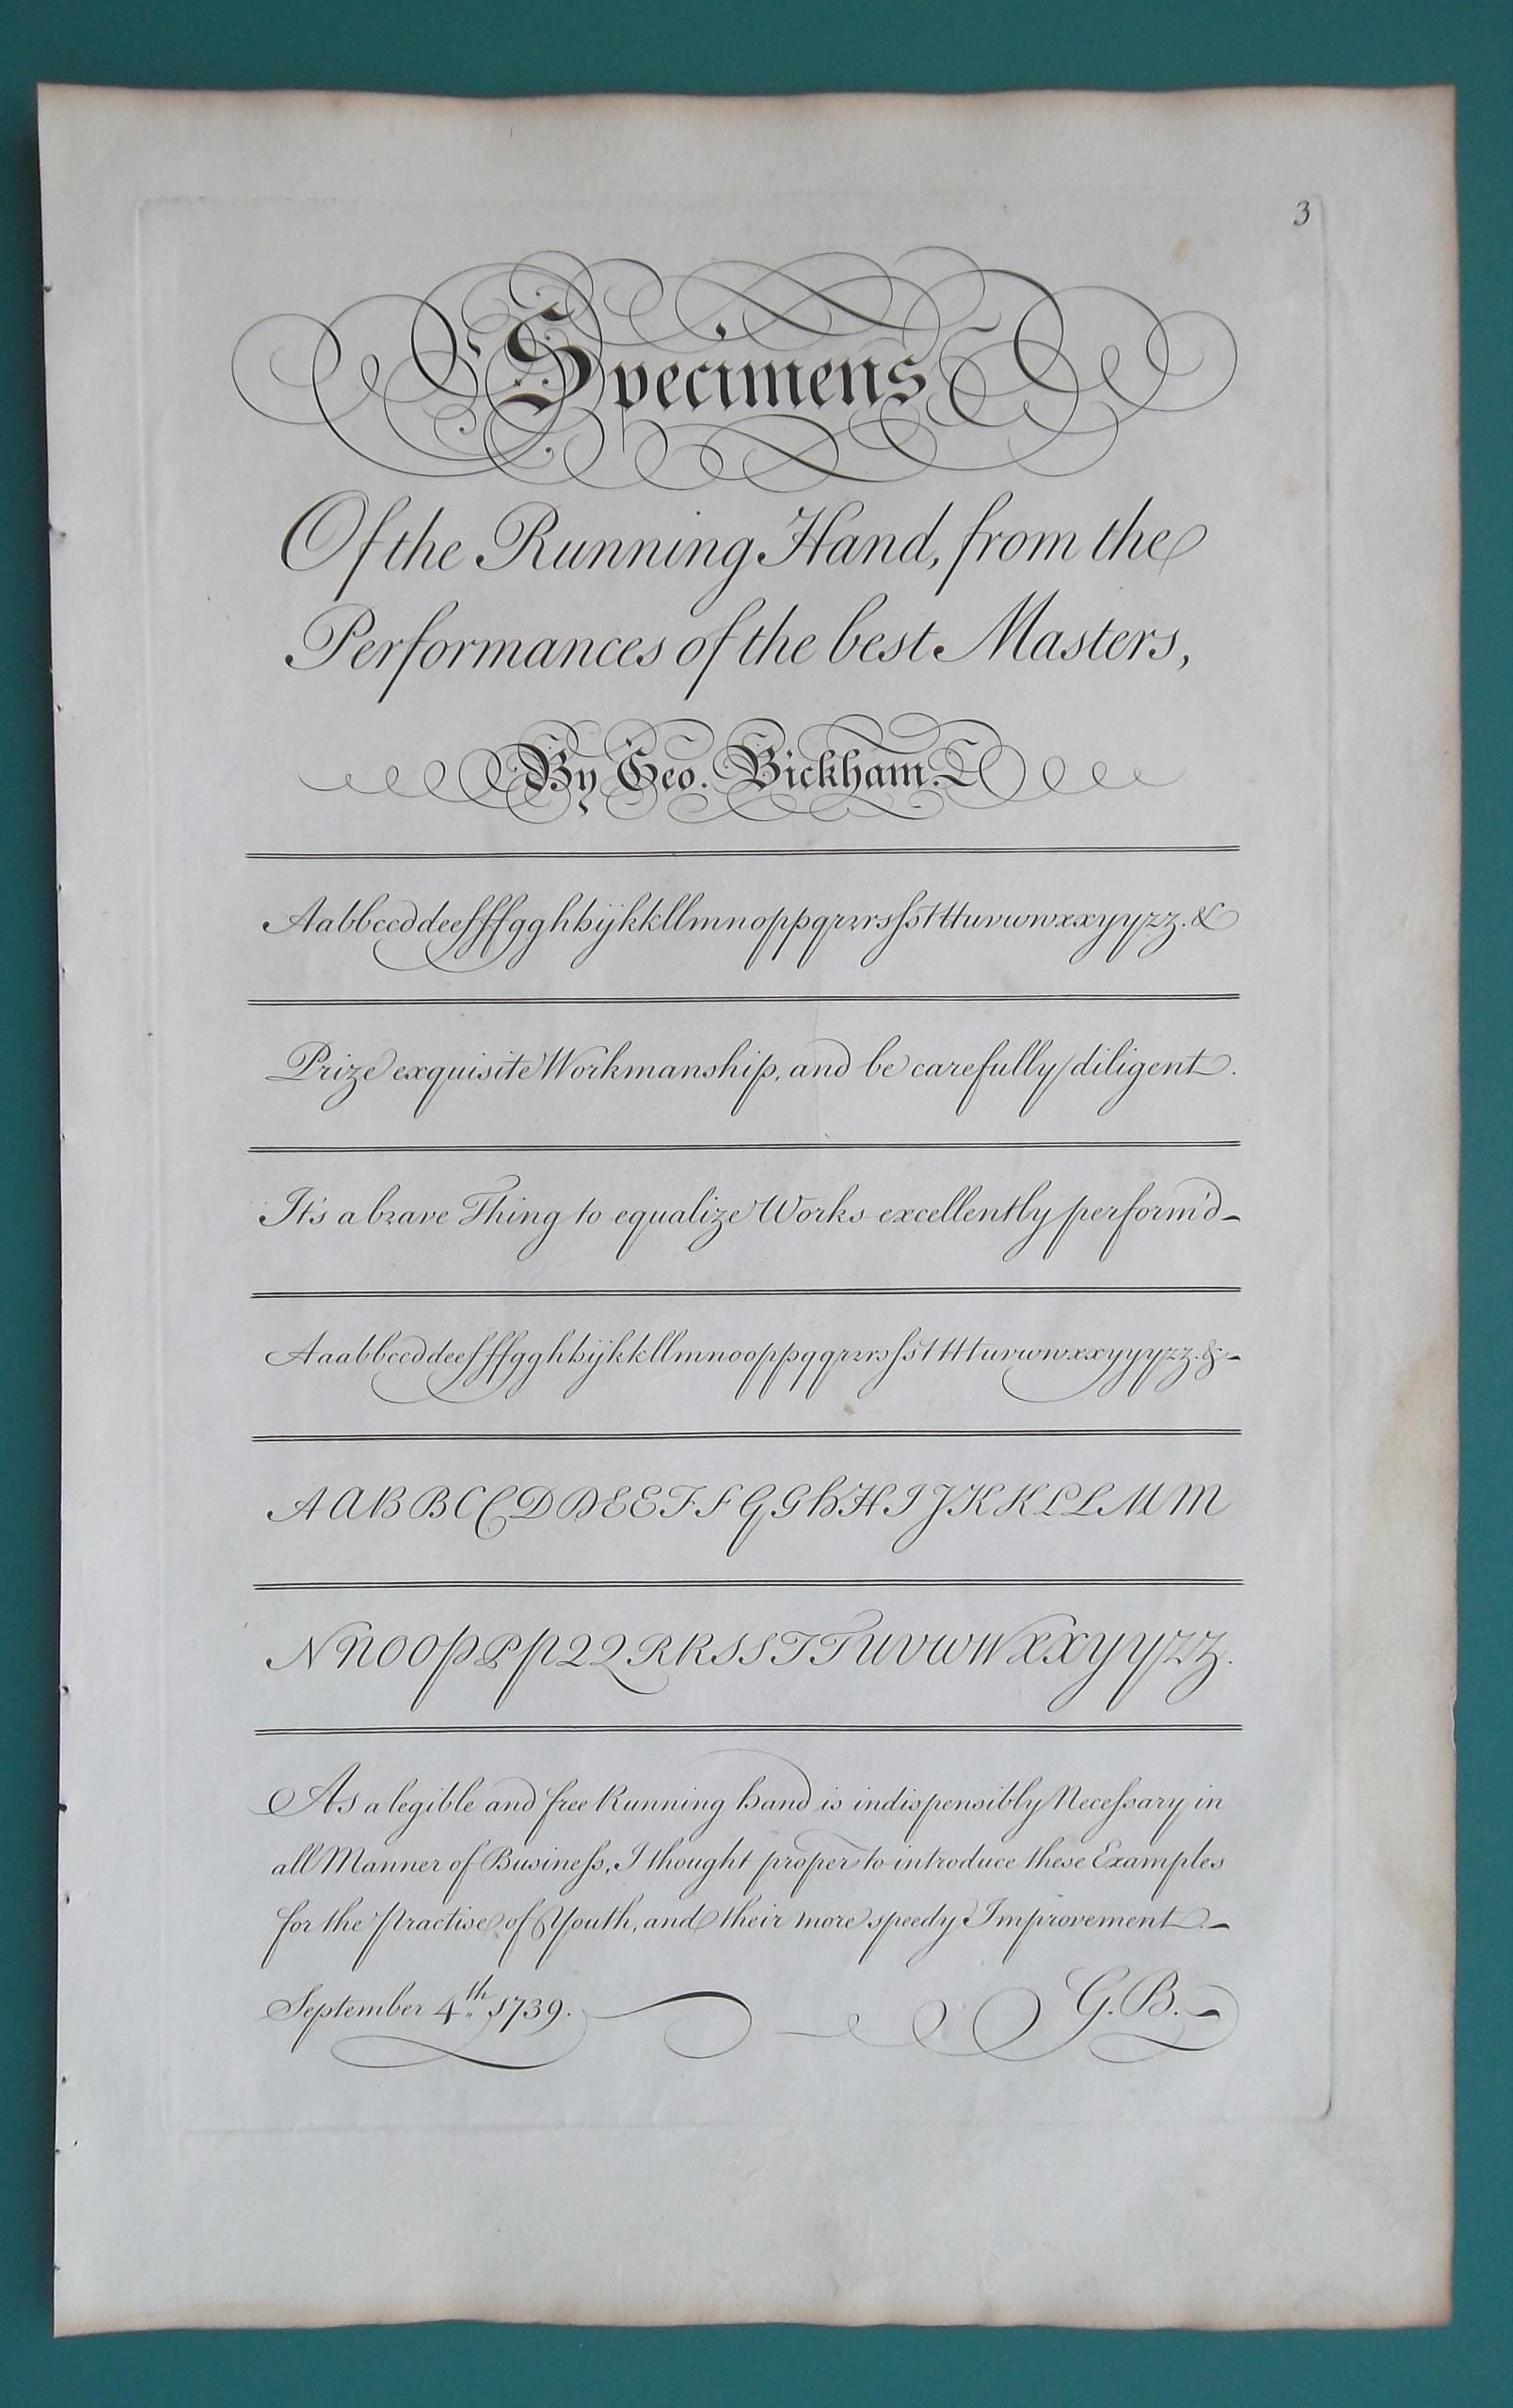 3
Specimens
Of the Running Hand, from the
Performances of the best Masters,
By Geo. Bickham.
Aabbccddeefffgghhijkkllmnoppqrrrsſstttuvwwxxyyzz. &
Prize exquisite Workmanship, and be carefully diligent.
It's a brave Thing to equalize Works excellently perform'd
Aaabbccddeefffgghhijkkllmnooppqqrrrsſstttuvwwxxyyyzz. &
AABBCCDDEEFFGGHHIJKKLLMM
NNOOPPPQQRRSSTTUVWWXXYYZZ.
As a legible and free Running hand is indispensibly Neceſsary in
all Manner of Busineſs, I thought proper to introduce these Examples
for the Practise of Youth, and their more speedy Improvement.
September 4th. 1739. G.B.